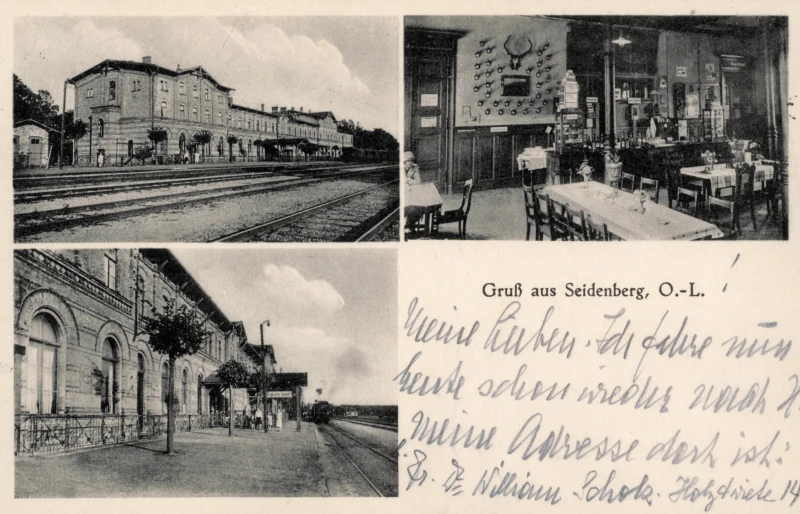 Gruß aus Seidenberg, O.-L. !
Meine Lieben. Ich fahre nun
heute schon wieder nach H
Meine Adresse dort ist:
Dr. William Scholz. Holztwiete 14